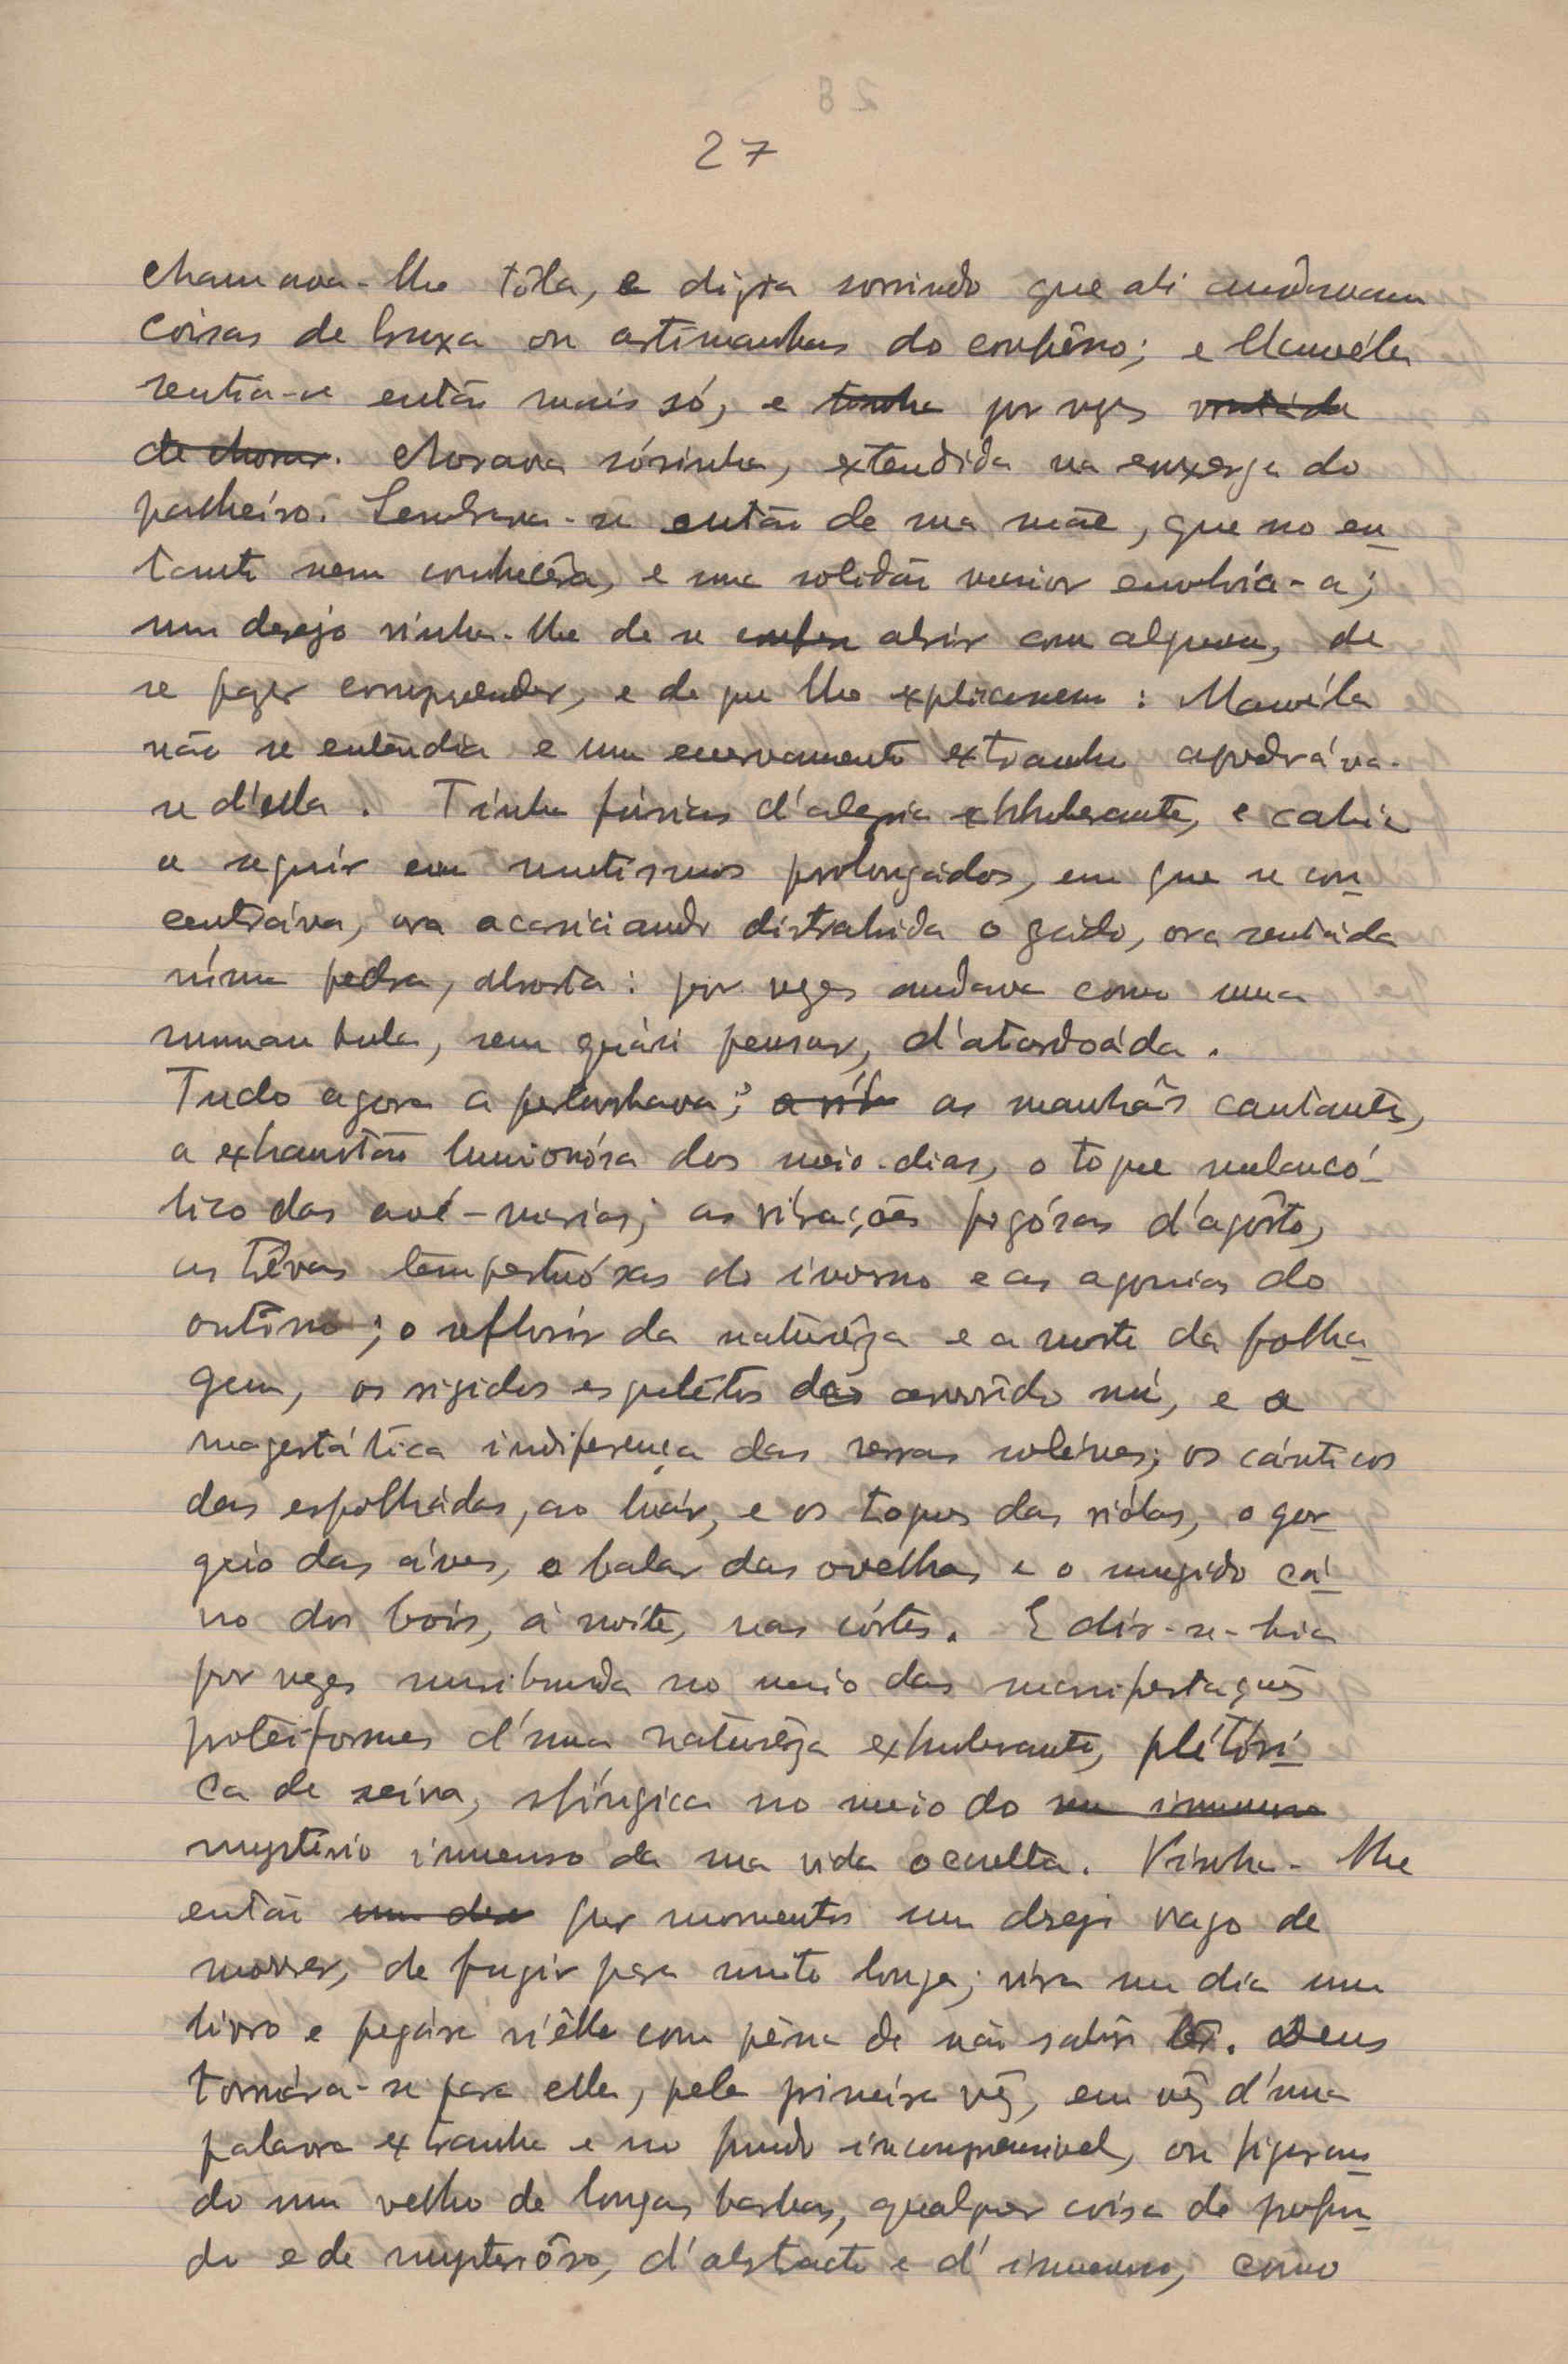 27
chamava-lhe tôla, e dizia sorrindo que ali andavam
coisas de bruxa ou artimanhas do
sentia-se então mais só, e tinha por vezes vontade
de chorar. Chorava sósinha, extendida na enxerga do
palheiro. Lembrava-se então de sua mãe, que no en-
tanto nem conhecêra, e uma solidão maior envolvia-a;
um desejo vinha-lhe de se abrir com alguem, de
se fazer comprender, e de que lho explicassem: Manuéla
não se entendia e um enervamento extranho apodráva-
se d'ella. Tinha fúrias d'alegria exhuberante, e cahia
a seguir em mutismos prolongados, em que se con-
centráva, ora acariciando distrahida o gado, ora sentáda
núma pedra, absorta: por vezes andava como uma
sumnambula, sem quási pensar, d'atordoáda.
Tudo agora a perturbava; as manhãs cantantes,
a exhaustão luminósa dos meio-dias, o toque melancó-
lico das avé-marias; as virações fogósas d'agôsto,
as trévas tempestuósas do inverno e as agonias do
outôno; o reflorir da naturêza e a morte da folha-
gem, os rigidos esquelétos do arvorêdo nú, e a
magestática indiferença das serras solénes; os cánticos
das esfolhádas, ao luár, e os toques das viólas, o gor-
geio das áves, o balar das ovelhas e o mugido cá-
vo dos bois, á noite, nas córtes. E dir-se-hia
por vezes moribunda no meio das manifestações
proteiformes d'uma naturêza exhuberante, plétóri-
ca de seiva, sfíngica no meio do um immenso
mystério immenso da sua vida occulta. Vinha-lhe
então um des por momentos um desejo vago de
morrer, de fugir para muito longe; vira um dia um
livro e pegára n'êlle com pêna de não sabêr lêr. Deus
tornára-se para ella, pela primeira vêz, em vêz d'uma
palavra extranha e no fundo incomprensivel, ou figuran-
do um velho de longas barbas, qualquer coisa de profun-
do e de mysteriôso, d'abstracto e d'immenso, como